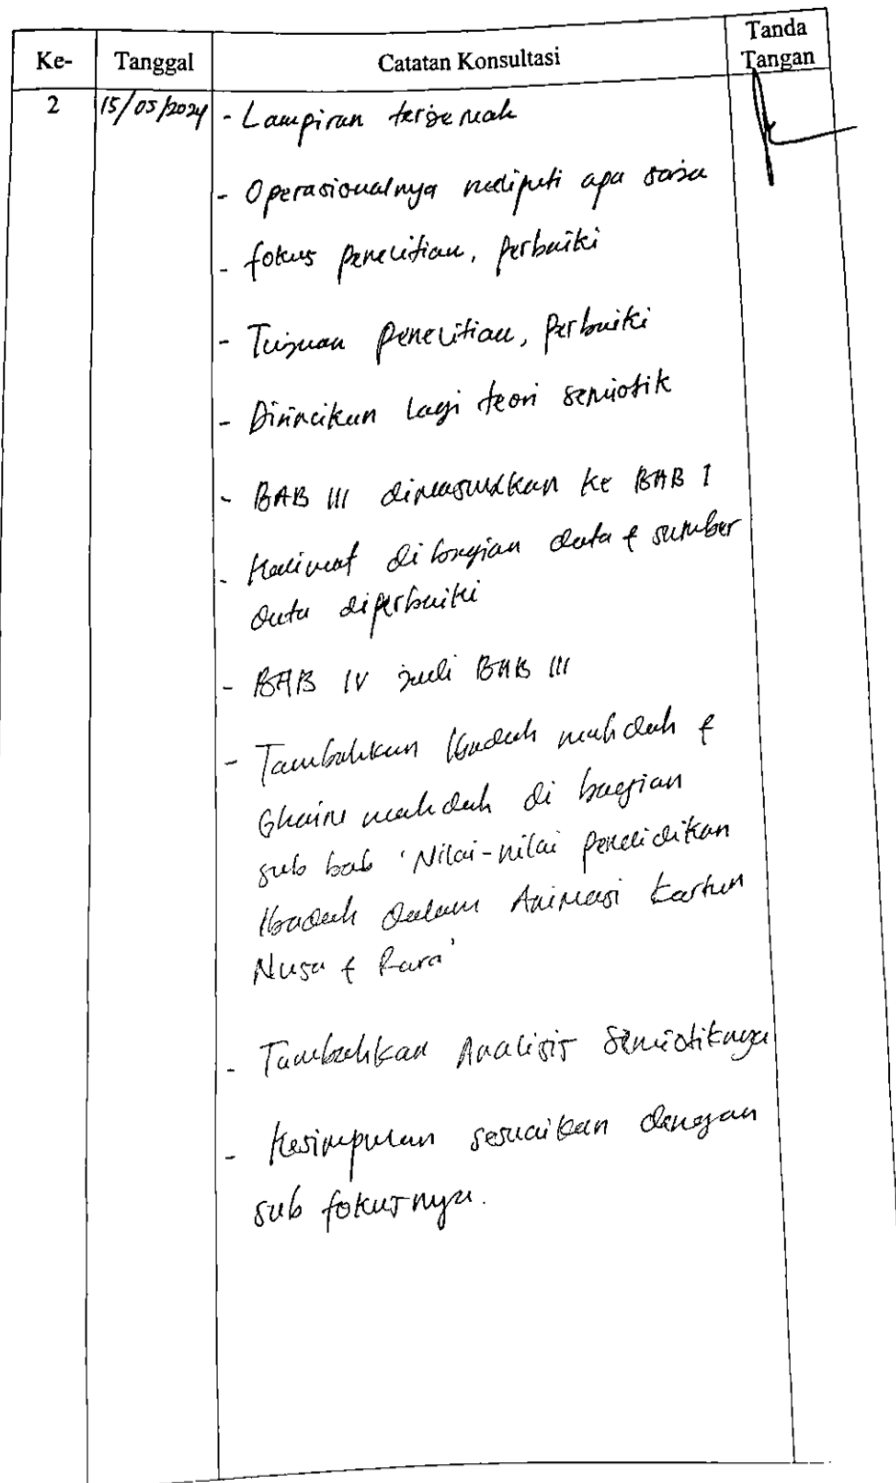 Ke-
Tanggal
Catatan Konsultasi
Tanda
Tangan
2
15/05/2024
- Lampiran terjemah
- Operasionalnya meliputi apa saja
- fokus penelitian, perbaiki
- Tujuan penelitian, perbaiki
- Dirincikan lagi teori semiotik
- BAB III dimasukkan ke BAB I
- Kalimat di bagian data & sumber
data diperbaiki
- BAB IV jadi BAB III
- Tambahkan Ibadah mahdah &
Ghairu mahdah di bagian
sub bab 'Nilai-nilai pendidikan
Ibadah dalam Animasi kartun
Nusa & Rara'
- Tambahkan Analisis Semiotiknya
- Kesimpulan sesuaikan dengan
sub fokusnya.